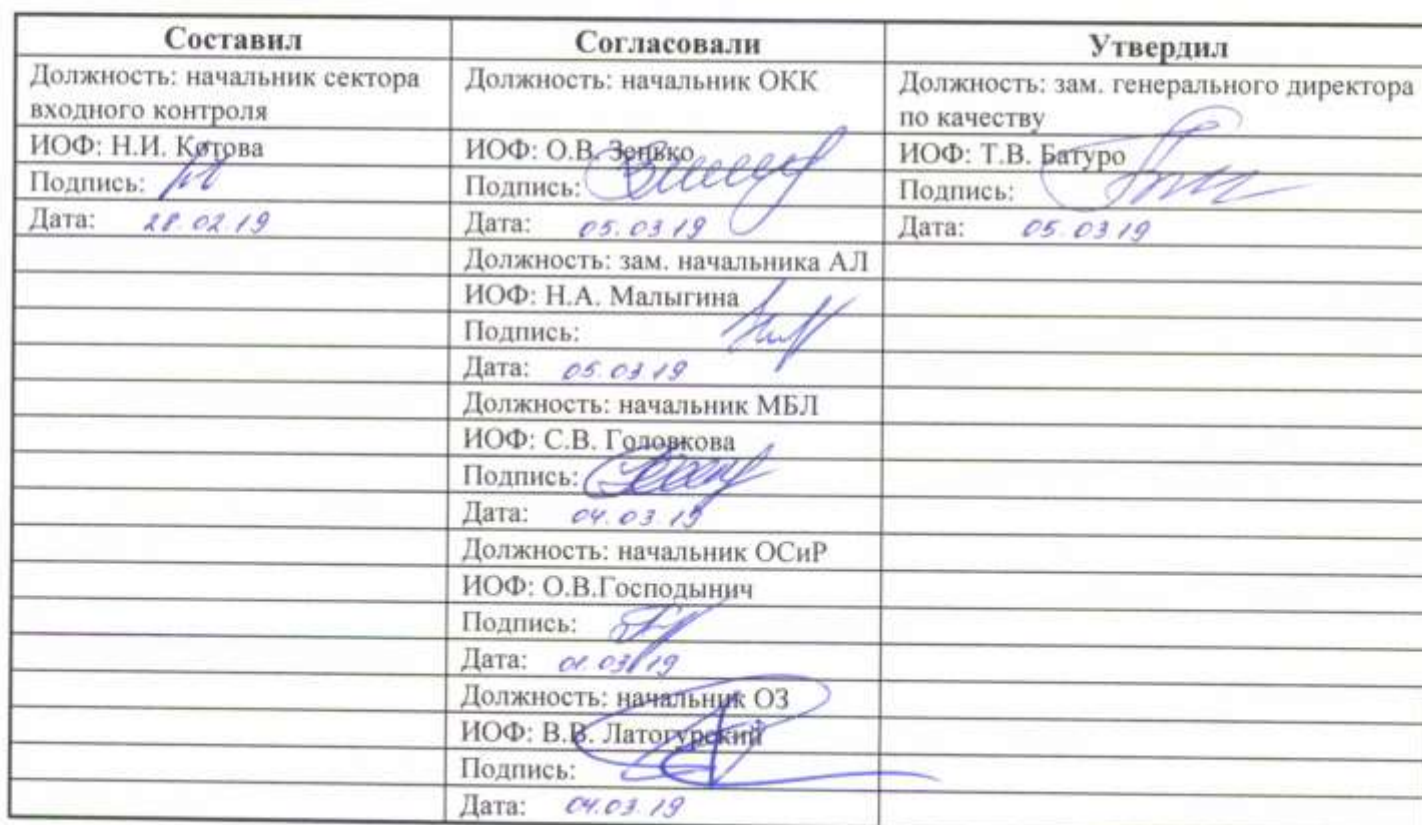 Составил Согласовали Утвердил
Должность: начальник сектора Должность: начальник ОКК Должность: зам. генерального директора
входного контроля по качеству
ИОФ: Н.И. Котова ИОФ: О.В. Зенько ИОФ: Т.В. Батуро
Подпись: Подпись: Подпись:
Дата: 28.02.19 Дата: 05.03.19 Дата: 05.03.19
Должность: зам. начальника АЛ
ИОФ: Н.А. Малыгина
Подпись:
Дата: 05.03.19
Должность: начальник МБЛ
ИОФ: С.В. Головкова
Подпись:
Дата: 04.03.19
Должность: начальник ОСиР
ИОФ: О.В.Господынич
Подпись:
Дата: 01.03.19
Должность: начальник ОЗ
ИОФ: В.В. Латогурский
Подпись:
Дата: 04.03.19